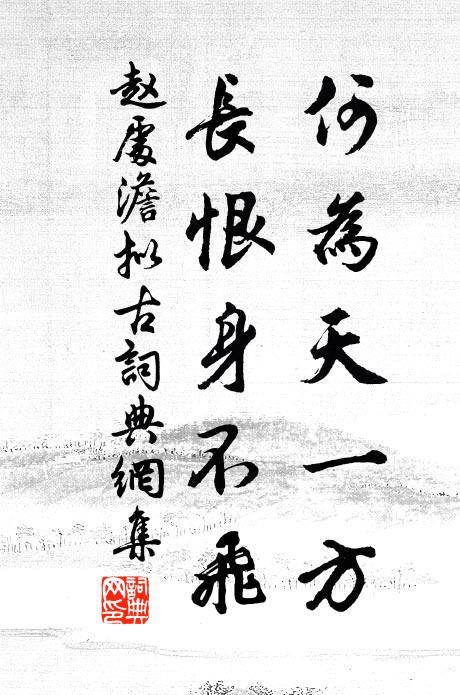 何為天一方
長恨身不飛
赵處澹拟古詞典網集
詞典网印